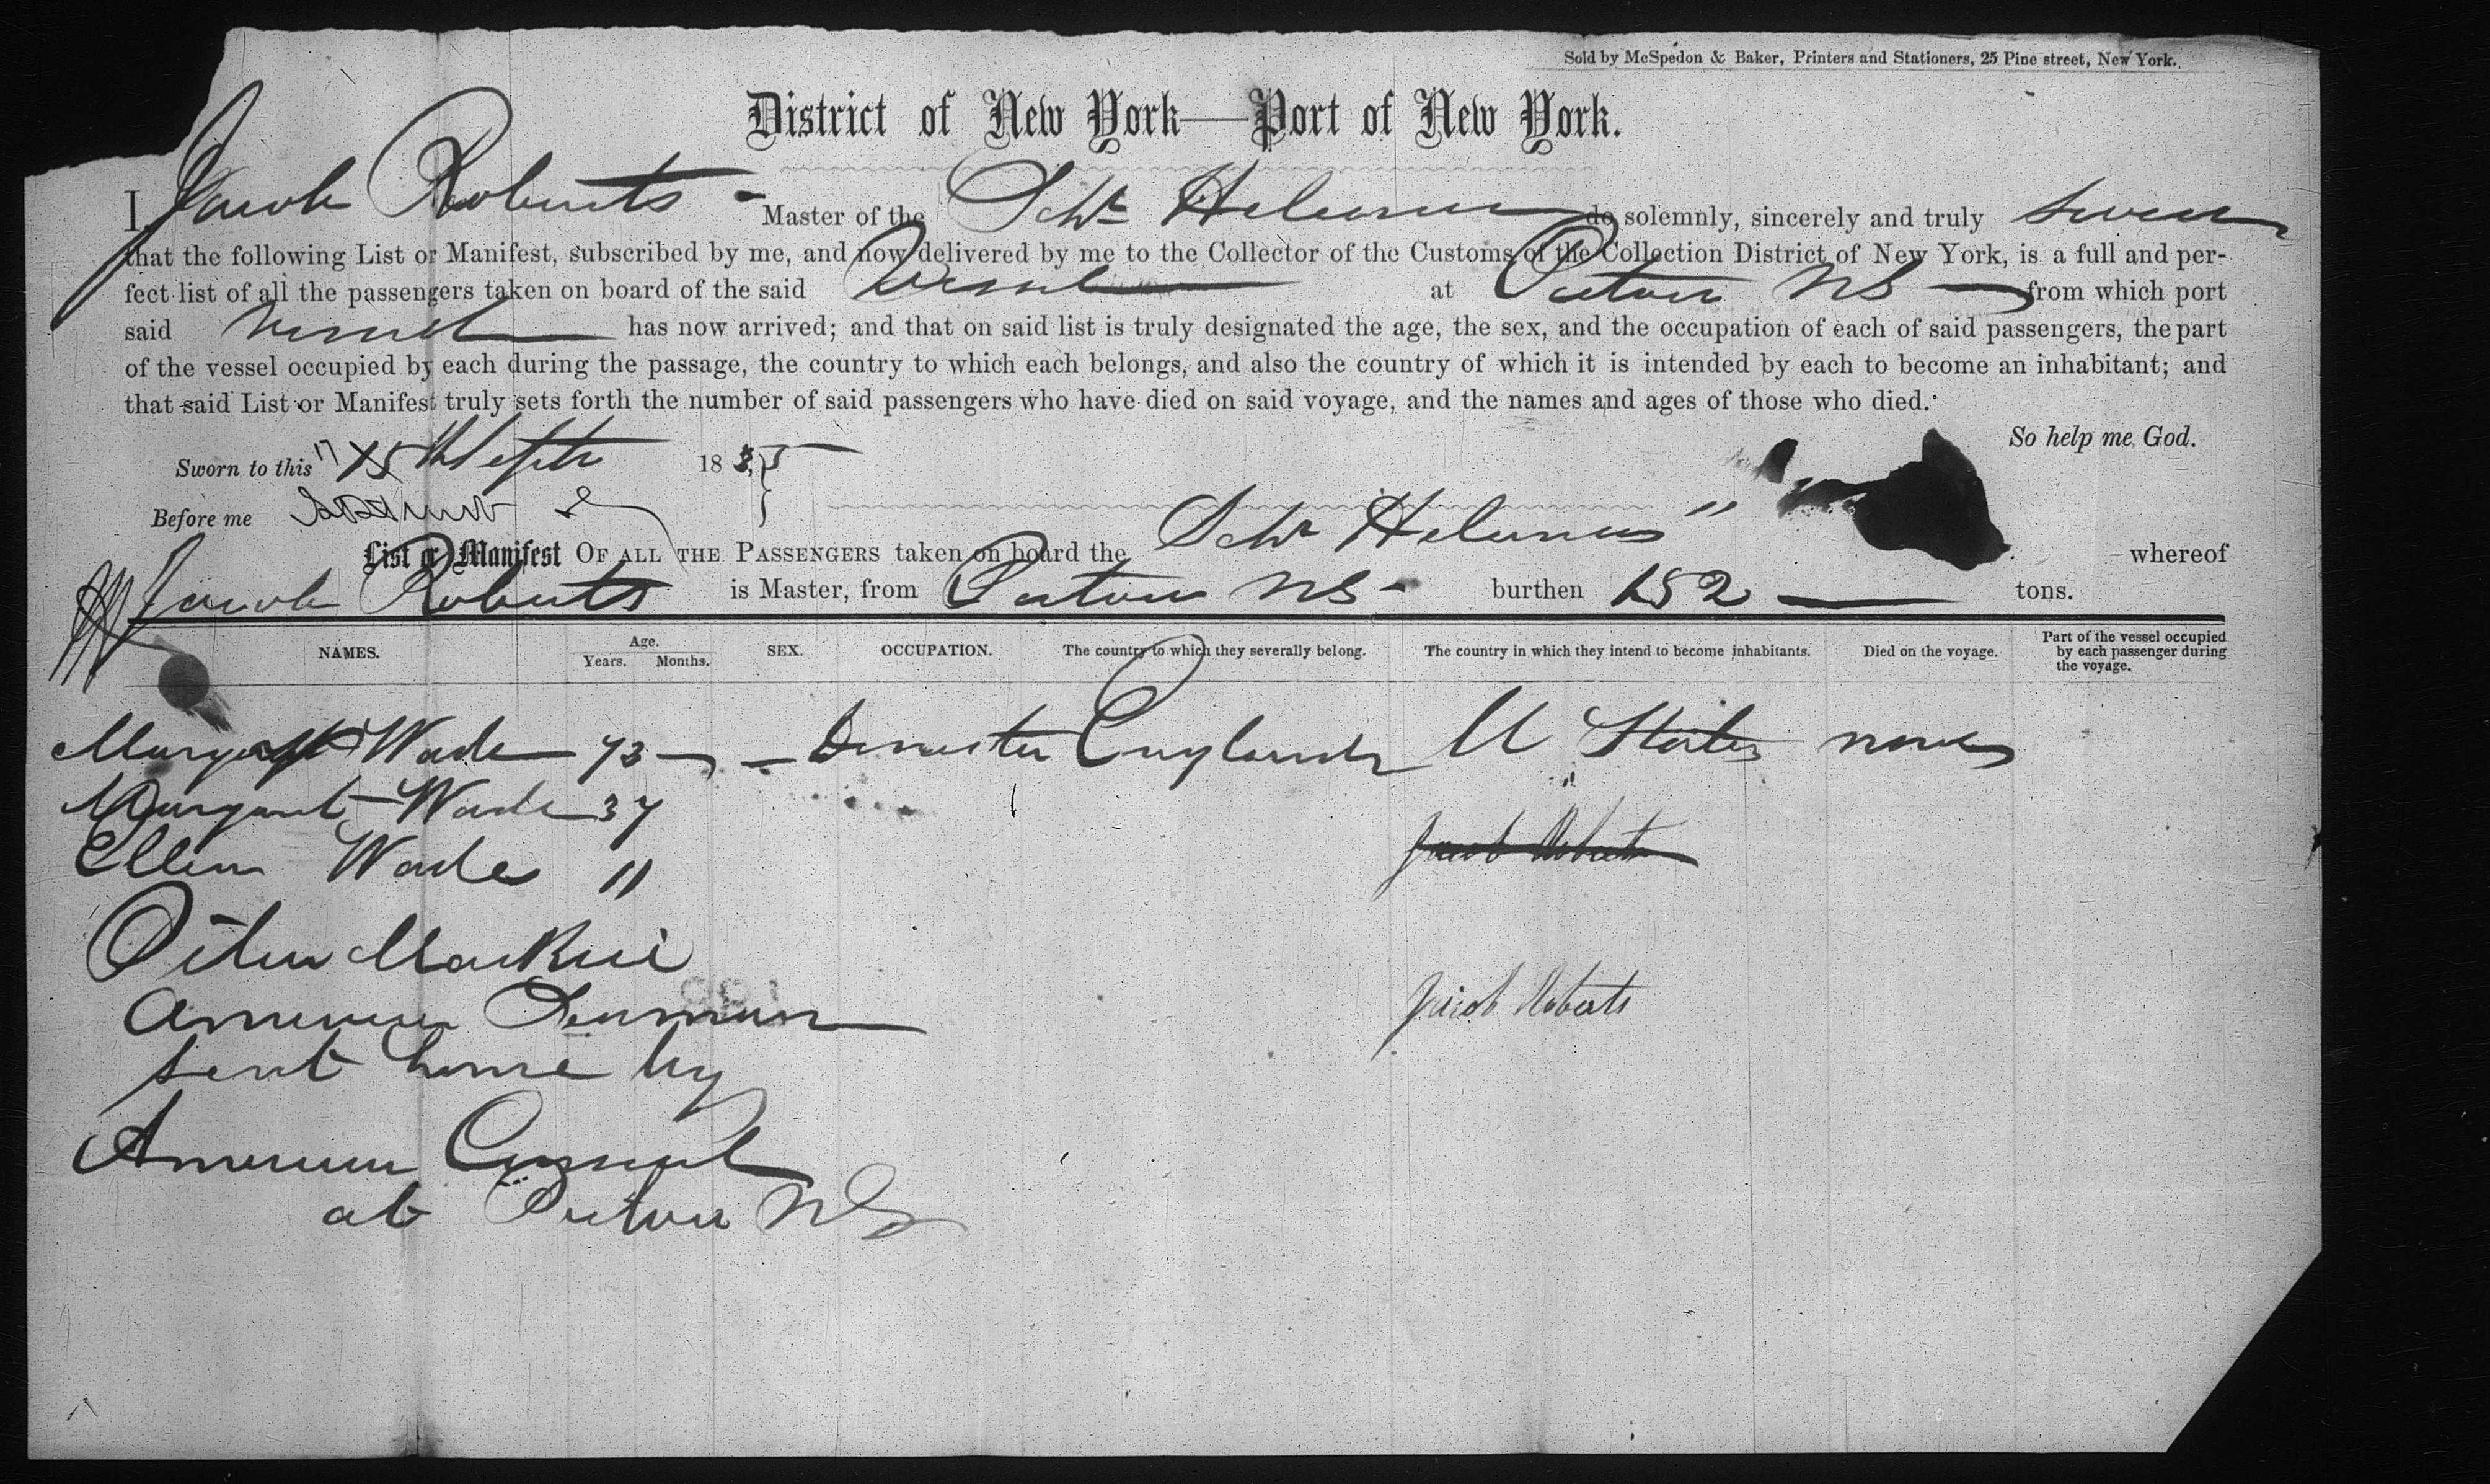 Sold by McSpedon & Baker, Printers and Stationers, 25 Pine street, New York.
District of New York—Port of New York.
I, Jacob Roberts - Master of the Schr do solemnly, sincerely and truly swear
that the following List or Manifest, subscribed by me, and now delivered by me to the Collector of the Customs of the Collection District of New York, is a full and per-
fect list of all the passengers taken on board of the said Vessel at Pictou NS — from which port
said vessel has now arrived; and that on said list is truly designated the age, the sex, and the occupation of each of said passengers, the part
of the vessel occupied by each during the passage, the country to which each belongs, and also the country of which it is intended by each to become an inhabitant; and
that said List or Manifest truly sets forth the number of said passengers who have died on said voyage, and the names and ages of those who died.
So help me God.
Sworn to this Septr 18
Before me
List or Manifest OF ALL THE PASSENGERS taken on board the Schr whereof
Jacob Roberts is Master, from Pictou NS - burthen 152 — tons.
NAMES. Age. Years. Months. SEX. OCCUPATION. The country to which they severally belong. The country in which they intend to become inhabitants. Died on the voyage. Part of the vessel occupied by each passenger during the voyage.
Wade 73 England U States none
Margaret Wade 37
Ellen Wade 11
Jacob Roberts
Peter
American Seaman
Jacob Roberts
sent home by
American Consul
at Pictou NS